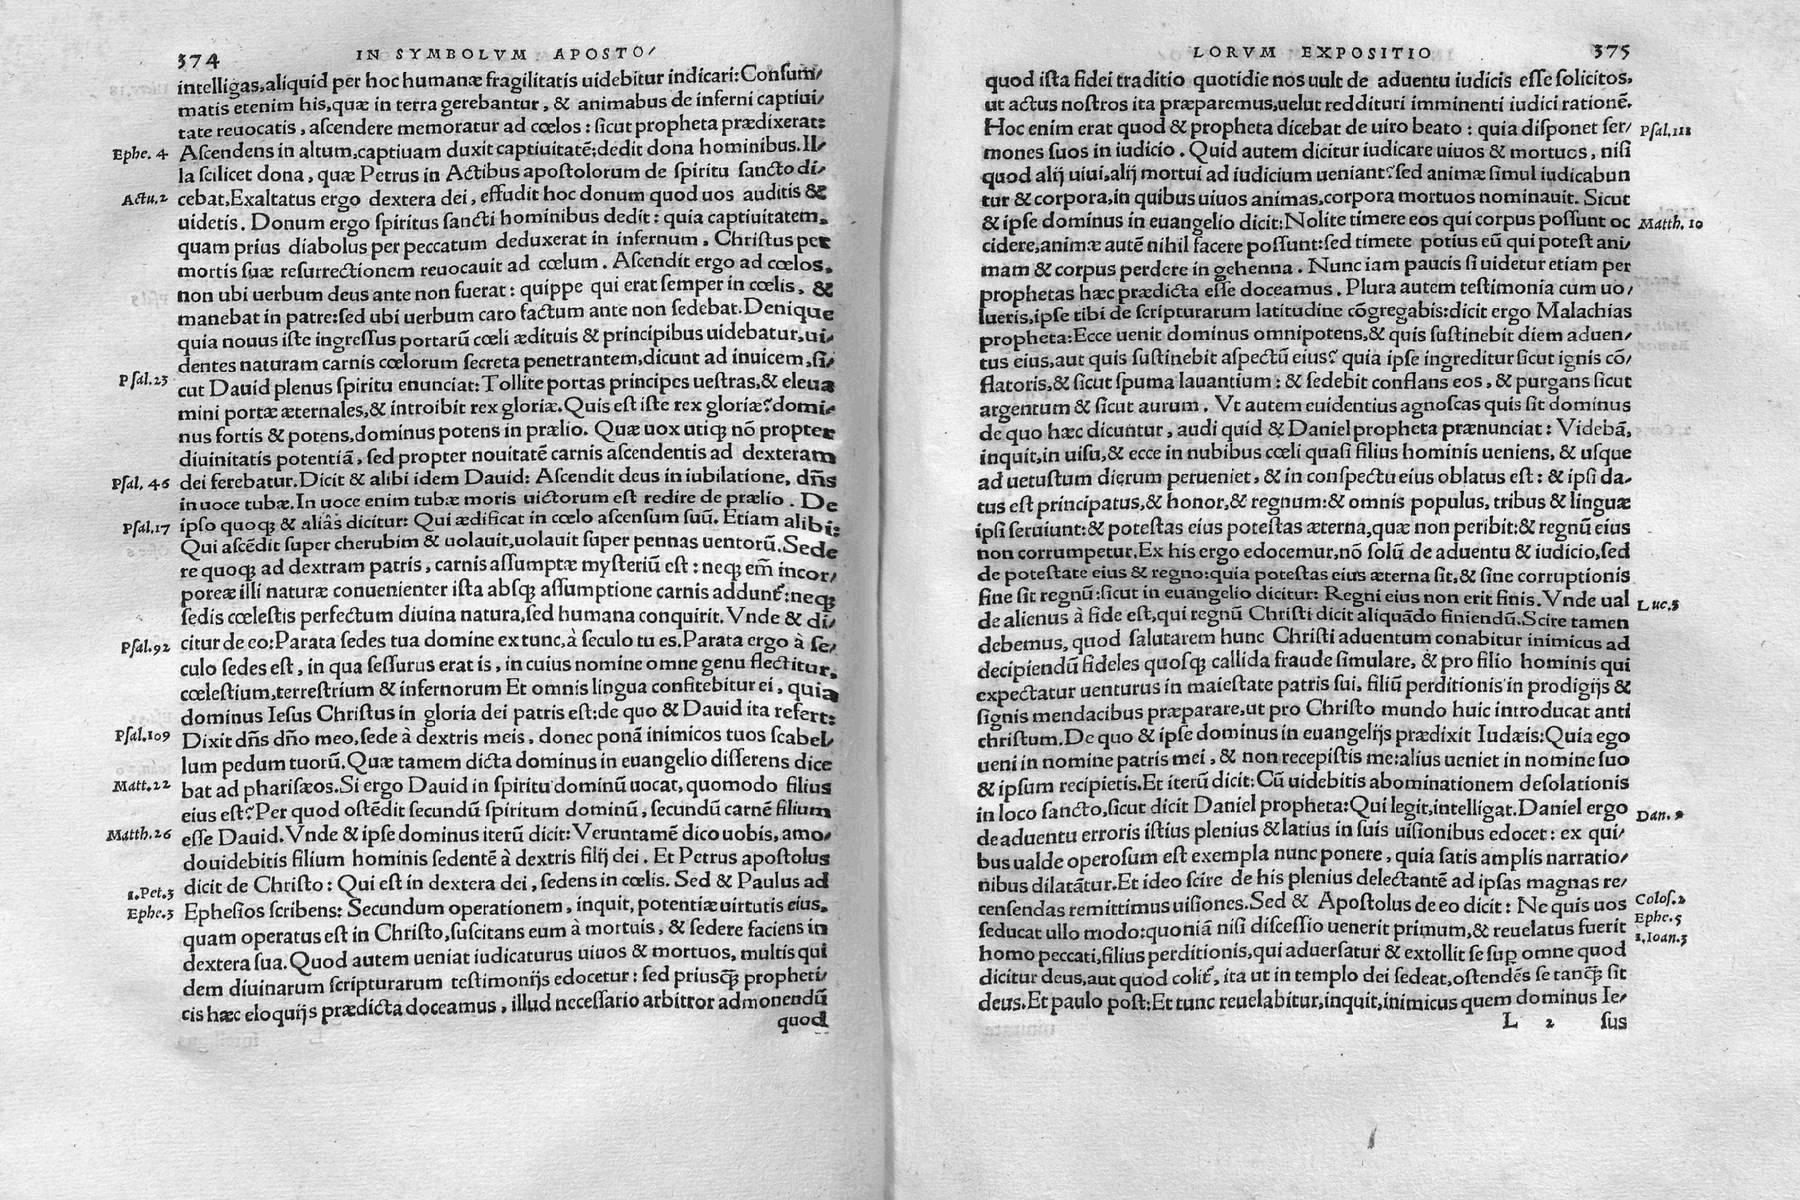 374
IN SYMBOLVM APOSTO/
intelligas,aliquid per hoc humanæ fragilitatis uidebitur indicari:Conſum/
matis etenim his,quæ in terra gerebantur, & animabus de inferni captiui/
tate reuocatis, aſcendere memoratur ad cœlos: ſicut propheta prædixerat:
Ephe. 4 Aſcendens in altum,captiuam duxit captiuitatē;dedit dona hominibus.Il/
la ſcilicet dona, quæ Petrus in Actibus apoſtolorum de ſpiritu ſancto di/
Actu.2 cebat.Exaltatus ergo dextera dei, effudit hoc donum quod uos auditis &
uidetis. Donum ergo ſpiritus ſancti hominibus dedit: quia captiuitatem,
quam prius diabolus per peccatum deduxerat in infernum, Chriſtus per
mortis ſuæ reſurrectionem reuocauit ad cœlum. Aſcendit ergo ad cœlos,
non ubi uerbum deus ante non fuerat: quippe qui erat ſemper in cœlis, &
manebat in patre:ſed ubi uerbum caro factum ante non ſedebat.Denique
quia nouus iſte ingreſſus portarū cœli ædituis & principibus uidebatur,ui/
dentes naturam carnis cœlorum ſecreta penetrantem,dicunt ad inuicem,ſi/
Pſal.23 cut Dauid plenus ſpiritu enunciat:Tollite portas principes ueſtras,& eleua
mini portæ æternales,& introibit rex gloriæ.Quis eſt iſte rex gloriæ?domi/
nus fortis & potens,dominus potens in prælio. Quæ uox utiqꝫ nō propter
diuinitatis potentiā, ſed propter nouitatē carnis aſcendentis ad dexteram
Pſal. 46 dei ferebatur.Dicit & alibi idem Dauid: Aſcendit deus in iubilatione, dñs
in uoce tubæ. In uoce enim tubæ moris uictorum eſt redire de prælio. De
Pſal.17 ipſo quoqꝫ & aliâs dicitur: Qui ædificat in cœlo aſcenſum ſuū. Etiam alibi:
Qui aſcēdit ſuper cherubim & uolauit,uolauit ſuper pennas uentorū.Sede
re quoqꝫ ad dextram patris, carnis aſſumptæ myſteriū eſt: neqꝫ em̄ incor/
poreæ illi naturæ conuenienter iſta abſqꝫ aſſumptione carnis addunt᷑:neqꝫ
ſedis cœleſtis perfectum diuina natura,ſed humana conquirit. Vnde & di/
Pſal.92 citur de eo:Parata ſedes tua domine ex tunc,à ſeculo tu es.Parata ergo à ſe/
culo ſedes eſt, in qua ſeſſurus erat is, in cuius nomine omne genu flectitur,
cœleſtium,terreſtrium & infernorum Et omnis lingua confitebitur ei, quia
dominus Ieſus Chriſtus in gloria dei patris eſt:de quo & Dauid ita refert:
Pſal.109 Dixit dñs dño meo,ſede à dextris meis, donec ponā inimicos tuos ſcabel/
lum pedum tuorū.Quæ tamem dicta dominus in euangelio differens dice
Matt.22 bat ad phariſæos.Si ergo Dauid in ſpiritu dominū uocat, quomodo filius
eius eſt?Per quod oſtēdit ſecundū ſpiritum dominū, ſecundū carnē filium
Matth.26 eſſe Dauid.Vnde & ipſe dominus iterū dicit: Veruntamē dico uobis, amo/
douidebitis filium hominis ſedentē à dextris filij dei. Et Petrus apoſtolus
1.Pet.3 dicit de Chriſto: Qui eſt in dextera dei, ſedens in cœlis. Sed & Paulus ad
Ephe.3 Epheſios ſcribens: Secundum operationem, inquit, potentiæ uirtutis eius,
quam operatus eſt in Chriſto,ſuſcitans eum à mortuis, & ſedere faciens in
dextera ſua.Quod autem ueniat iudicaturus uiuos & mortuos, multis qui
dem diuinarum ſcripturarum teſtimonijs edocetur: ſed priusqꝫ propheti/
cis hæc eloquijs prædicta doceamus, illud neceſſario arbitror admonendū
quod
LORVM EXPOSITIO
375
quod iſta fidei traditio quotidie nos uult de aduentu iudicis eſſe ſolicitos,
ut actus noſtros ita præparemus,uelut reddituri imminenti iudici rationē.
Hoc enim erat quod & propheta dicebat de uiro beato: quia diſponet ſer/ Pſal.111
mones ſuos in iudicio. Quid autem dicitur iudicare uiuos & mortuos, niſi
quod alij uiui,alij mortui ad iudicium ueniant?ſed animæ ſimul iudicabun
tur & corpora,in quibus uiuos animas,corpora mortuos nominauit. Sicut
& ipſe dominus in euangelio dicit:Nolite timere eos qui corpus poſſunt oc Matth. 10
cidere,animæ autē nihil facere poſſunt:ſed timete potius eū qui poteſt ani/
mam & corpus perdere in gehenna. Nunc iam paucis ſi uidetur etiam per
prophetas hæc prædicta eſſe doceamus. Plura autem teſtimonia cum uo/
lueris,ipſe tibi de ſcripturarum latitudine cōgregabis:dicit ergo Malachias
propheta:Ecce uenit dominus omnipotens,& quis ſuſtinebit diem aduen/
tus eius,aut quis ſuſtinebit aſpectū eius? quia ipſe ingreditur ſicut ignis cō/
flatoris,& ſicut ſpuma lauantium: & ſedebit conflans eos, & purgans ſicut
argentum & ſicut aurum. Vt autem euidentius agnoſcas quis ſit dominus
de quo hæc dicuntur, audi quid & Daniel propheta prænunciat: Videbā,
inquit,in uiſu,& ecce in nubibus cœli quaſi filius hominis ueniens, & uſque
ad uetuſtum dierum perueniet, & in conſpectu eius oblatus eſt: & ipſi da/
tus eſt principatus,& honor,& regnum:& omnis populus, tribus & linguæ
ipſi ſeruiunt:& poteſtas eius poteſtas æterna,quæ non peribit:& regnū eius
non corrumpetur.Ex his ergo edocemur,nō ſolū de aduentu & iudicio,ſed
de poteſtate eius & regno:quia poteſtas eius æterna ſit,& ſine corruptionis
fine ſit regnū:ſicut in euangelio dicitur: Regni eius non erit finis.Vnde ual Luc.3
de alienus à fide eſt,qui regnū Chriſti dicit aliquādo finiendū.Scire tamen
debemus, quod ſalutarem hunc Chriſti aduentum conabitur inimicus ad
decipiendū fideles quoſqꝫ callida fraude ſimulare, & pro filio hominis qui
expectatur uenturus in maieſtate patris ſui, filiū perditionis in prodigijs &
ſignis mendacibus præparare,ut pro Chriſto mundo huic introducat anti
chriſtum.De quo & ipſe dominus in euangelijs prædixit Iudæis:Quia ego
ueni in nomine patris mei, & non recepiſtis me:alius ueniet in nomine ſuo
& ipſum recipietis.Et iterū dicit: Cū uidebitis abominationem deſolationis
in loco ſancto,ſicut dicit Daniel propheta:Qui legit,intelligat.Daniel ergo Dan. 9
de aduentu erroris iſtius plenius & latius in ſuis uiſionibus edocet: ex qui/
bus ualde operoſum eſt exempla nunc ponere, quia ſatis amplis narratio/
nibus dilatātur.Et ideo ſcire de his plenius delectantē ad ipſas magnas re/
cenſendas remittimus uiſiones.Sed & Apoſtolus de eo dicit: Ne quis uos Coloſ.2
ſeducat ullo modo:quoniā niſi diſceſſio uenerit primum,& reuelatus fuerit Ephe.5
homo peccati,filius perditionis,qui aduerſatur & extollit ſe ſup omne quod 1.Ioan.3
dicitur deus,aut quod colit᷑, ita ut in templo dei ſedeat,oſtendēs ſe tanqꝫ ſit
deus.Et paulo poſt:Et tunc reuelabitur,inquit,inimicus quem dominus Ie/
L 2 ſus